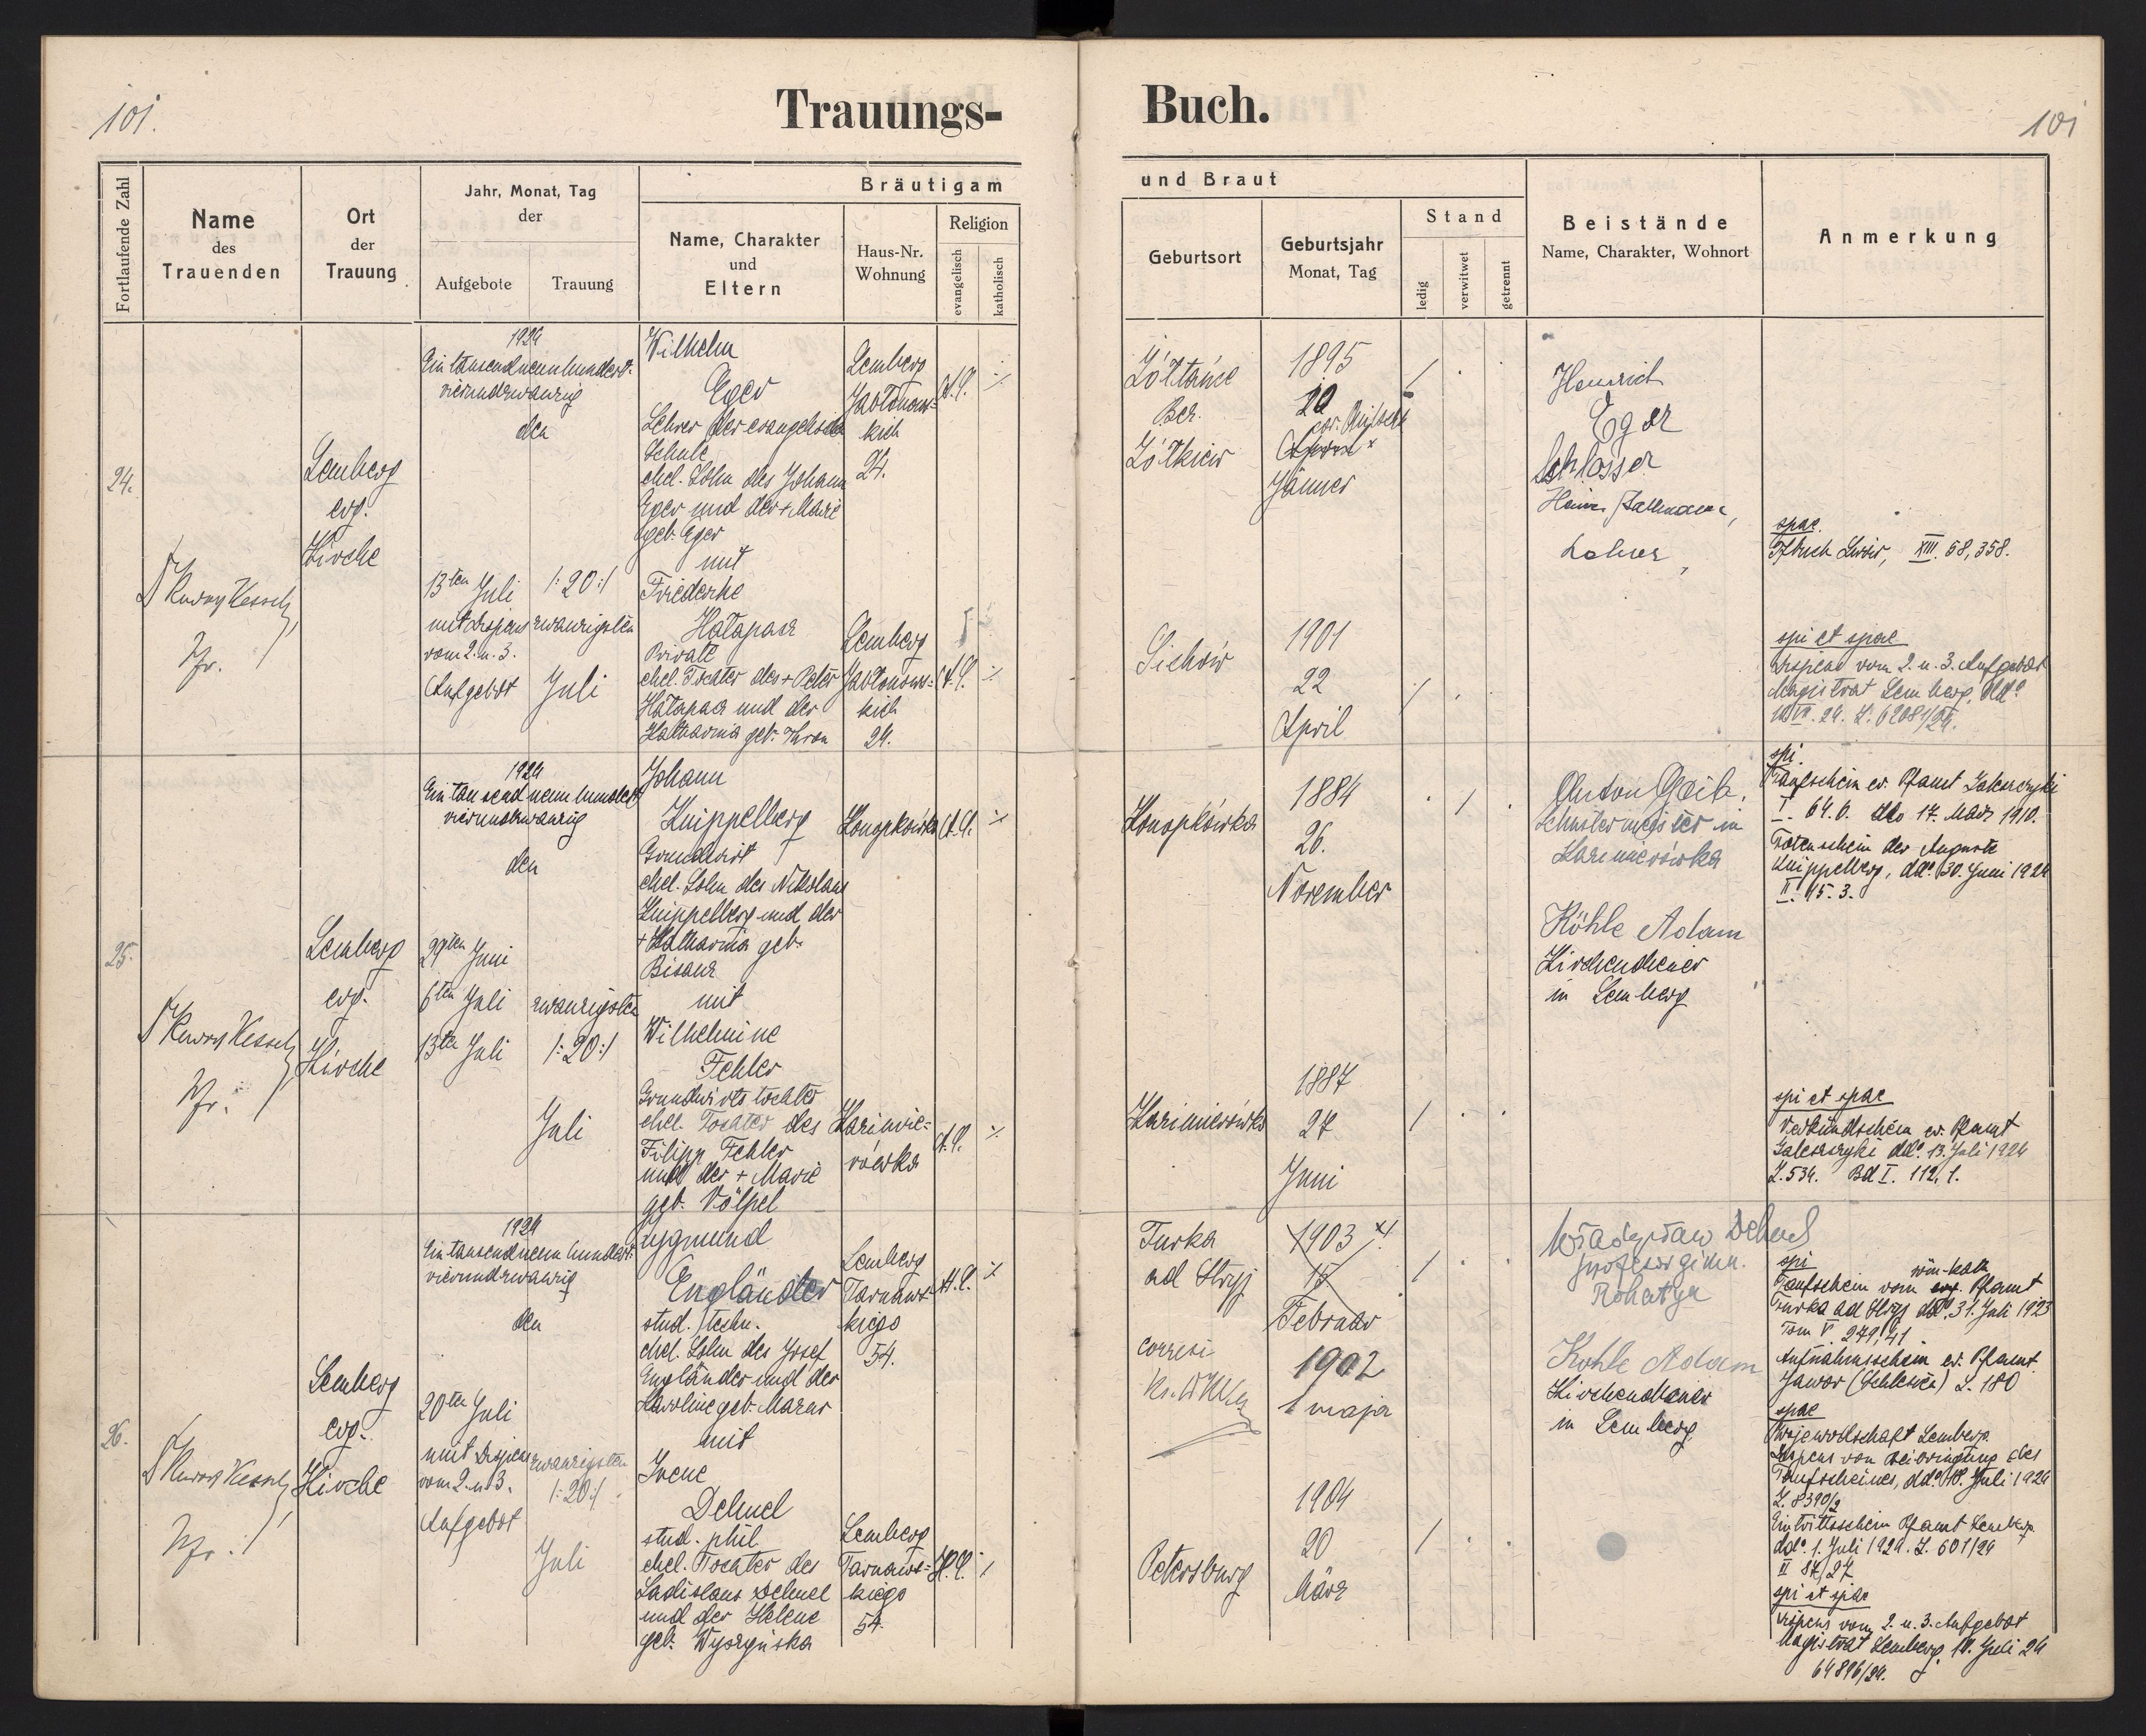 101.
101
Trauungs-
Buch.
Fortlaufende Zahl
Name
des
Trauenden
Ort
der
Trauung
Jahr, Monat, Tag
der
Aufgebote
Trauung
Bräutigam
Name, Charakter
und
Eltern
Haus-Nr.
Wohnung
Religion
evangelisch
katholisch
und Braut
Geburtsort
Geburtsjahr
Monat, Tag
Stand
ledig
verwitwet
getrennt
Beistände
Name, Charakter, Wohnort
Anmerkung
24.
Lemberg
evg.
Kirche
1924
Eintausendneunhundert-
vierundzwanzig
den
13ten Juli
mit Dispens
vom 2. u. 3.
Aufgebot
/:20:/
zwanzigsten
Juli
Wilhelm
Eger
Lehrer der evangelischen
Schule
ehel. Sohn des Johann
Eger und der + Marie
geb. Eger
mit
Friederike
Private
ehel. Tochter des + Peter
und der
Katharina geb.
Lemberg
Jabłonow-
kich
24.
A.C.
Lemberg
Jabłonows-
kich
24.
A.C.
Żółtańce
Bez.
Żółkiew
1895
20
Jänner
Sichów
1901
22
April
Heinrich
Eger
Schlosser
Lehrer,
spac.
XIII. 58, 358.
spi et spac
Dispens vom 2. u. 3. Aufgebot
Magistrat Lemberg, ddo
25.
Lemberg
evg.
Kirche
1924
Eintausendneunhundert
vierundzwanzig
den
29ten Juni
6ten Juli
13ten Juli
zwanzigsten
/:20:/
Juli
Johann
Knippelberg
Grundwirt
ehel. Sohn des Nikolaus
Knippelberg und der
+ Katharina geb.
Bisanz
mit
Wilhelmine
Fehler
Grundwirtstochter
ehel. Tochter des
Filipp Fehler
und der + Marie
geb. Völpel
Konopkówka
A.C.
Kazimie-
rówka
A.C.
Konopkówka
1884
26.
November
Kazimierówka
1887
27
Juni
Anton
in
Kazimierówka
Köhle Adam
Kirchendiener
in Lemberg
spi.
Taufschein ev. Pfamt Zaleszczyki
I. 64. 6. ddo 17. März 1910.
Totenschein der Auguste
Knippelberg, ddo. 30. Juni 1924
II. 15. 3.
spi et spac
Verkündschein ev. Pfamt
Zaleszczyki ddo. 13. Juli 1924
Z. 534. Bd I. 112, 1.
26.
Lemberg
evg.
Kirche
1924
Eintausendneunhundert
vierundzwanzig
den
20ten Juli
mit Dispens
vom 2. u. 3.
Aufgebot
zwanzigsten
/:20:/
Juli
Zygmund
Engländer
stud. techn.
ehel. Sohn des Josef
Engländer und der
Karoline geb.
mit
Irene
Dehnel
stud. phil
ehel. Tochter des
Ladislaus Dehnel
und der Helene
geb. Wyszyńska
Lemberg
Tarnaws-
kiego
54.
H.C.
Lemberg
Tarnaws-
kiego
54.
H.C.
Turka
ad Stryj
1903
15
Februar
1902
1 maja
Petersburg
1904
20
März
Władysław Dehnel
profesor gimn.
Rohatyn
Kohle Adam
Kirchendiener
in Lemberg
spi
röm-kath
Taufschein vom evg. Pfamt
Turka ad Stryj ddo. 31. Juli 1923
Tom V. 279, 41.
Aufnahmsschein ev. Pfamt.
Jawor (Schlesien) Z. 180
spac
Wojewodschaft Lemberg
Dispens von Beibringung des
Taufscheines, ddo. 18. Juli 1924
Z. 8390/2
Eintrittsschein Pfamt Lemberg
ddo. 1. Juli 1924. Z. 601/24
II 84/27
spi et spac
Dispens vom 2. u. 3. Aufgebot
Magistrat Lemberg, 18. Juli 24
64896/24.